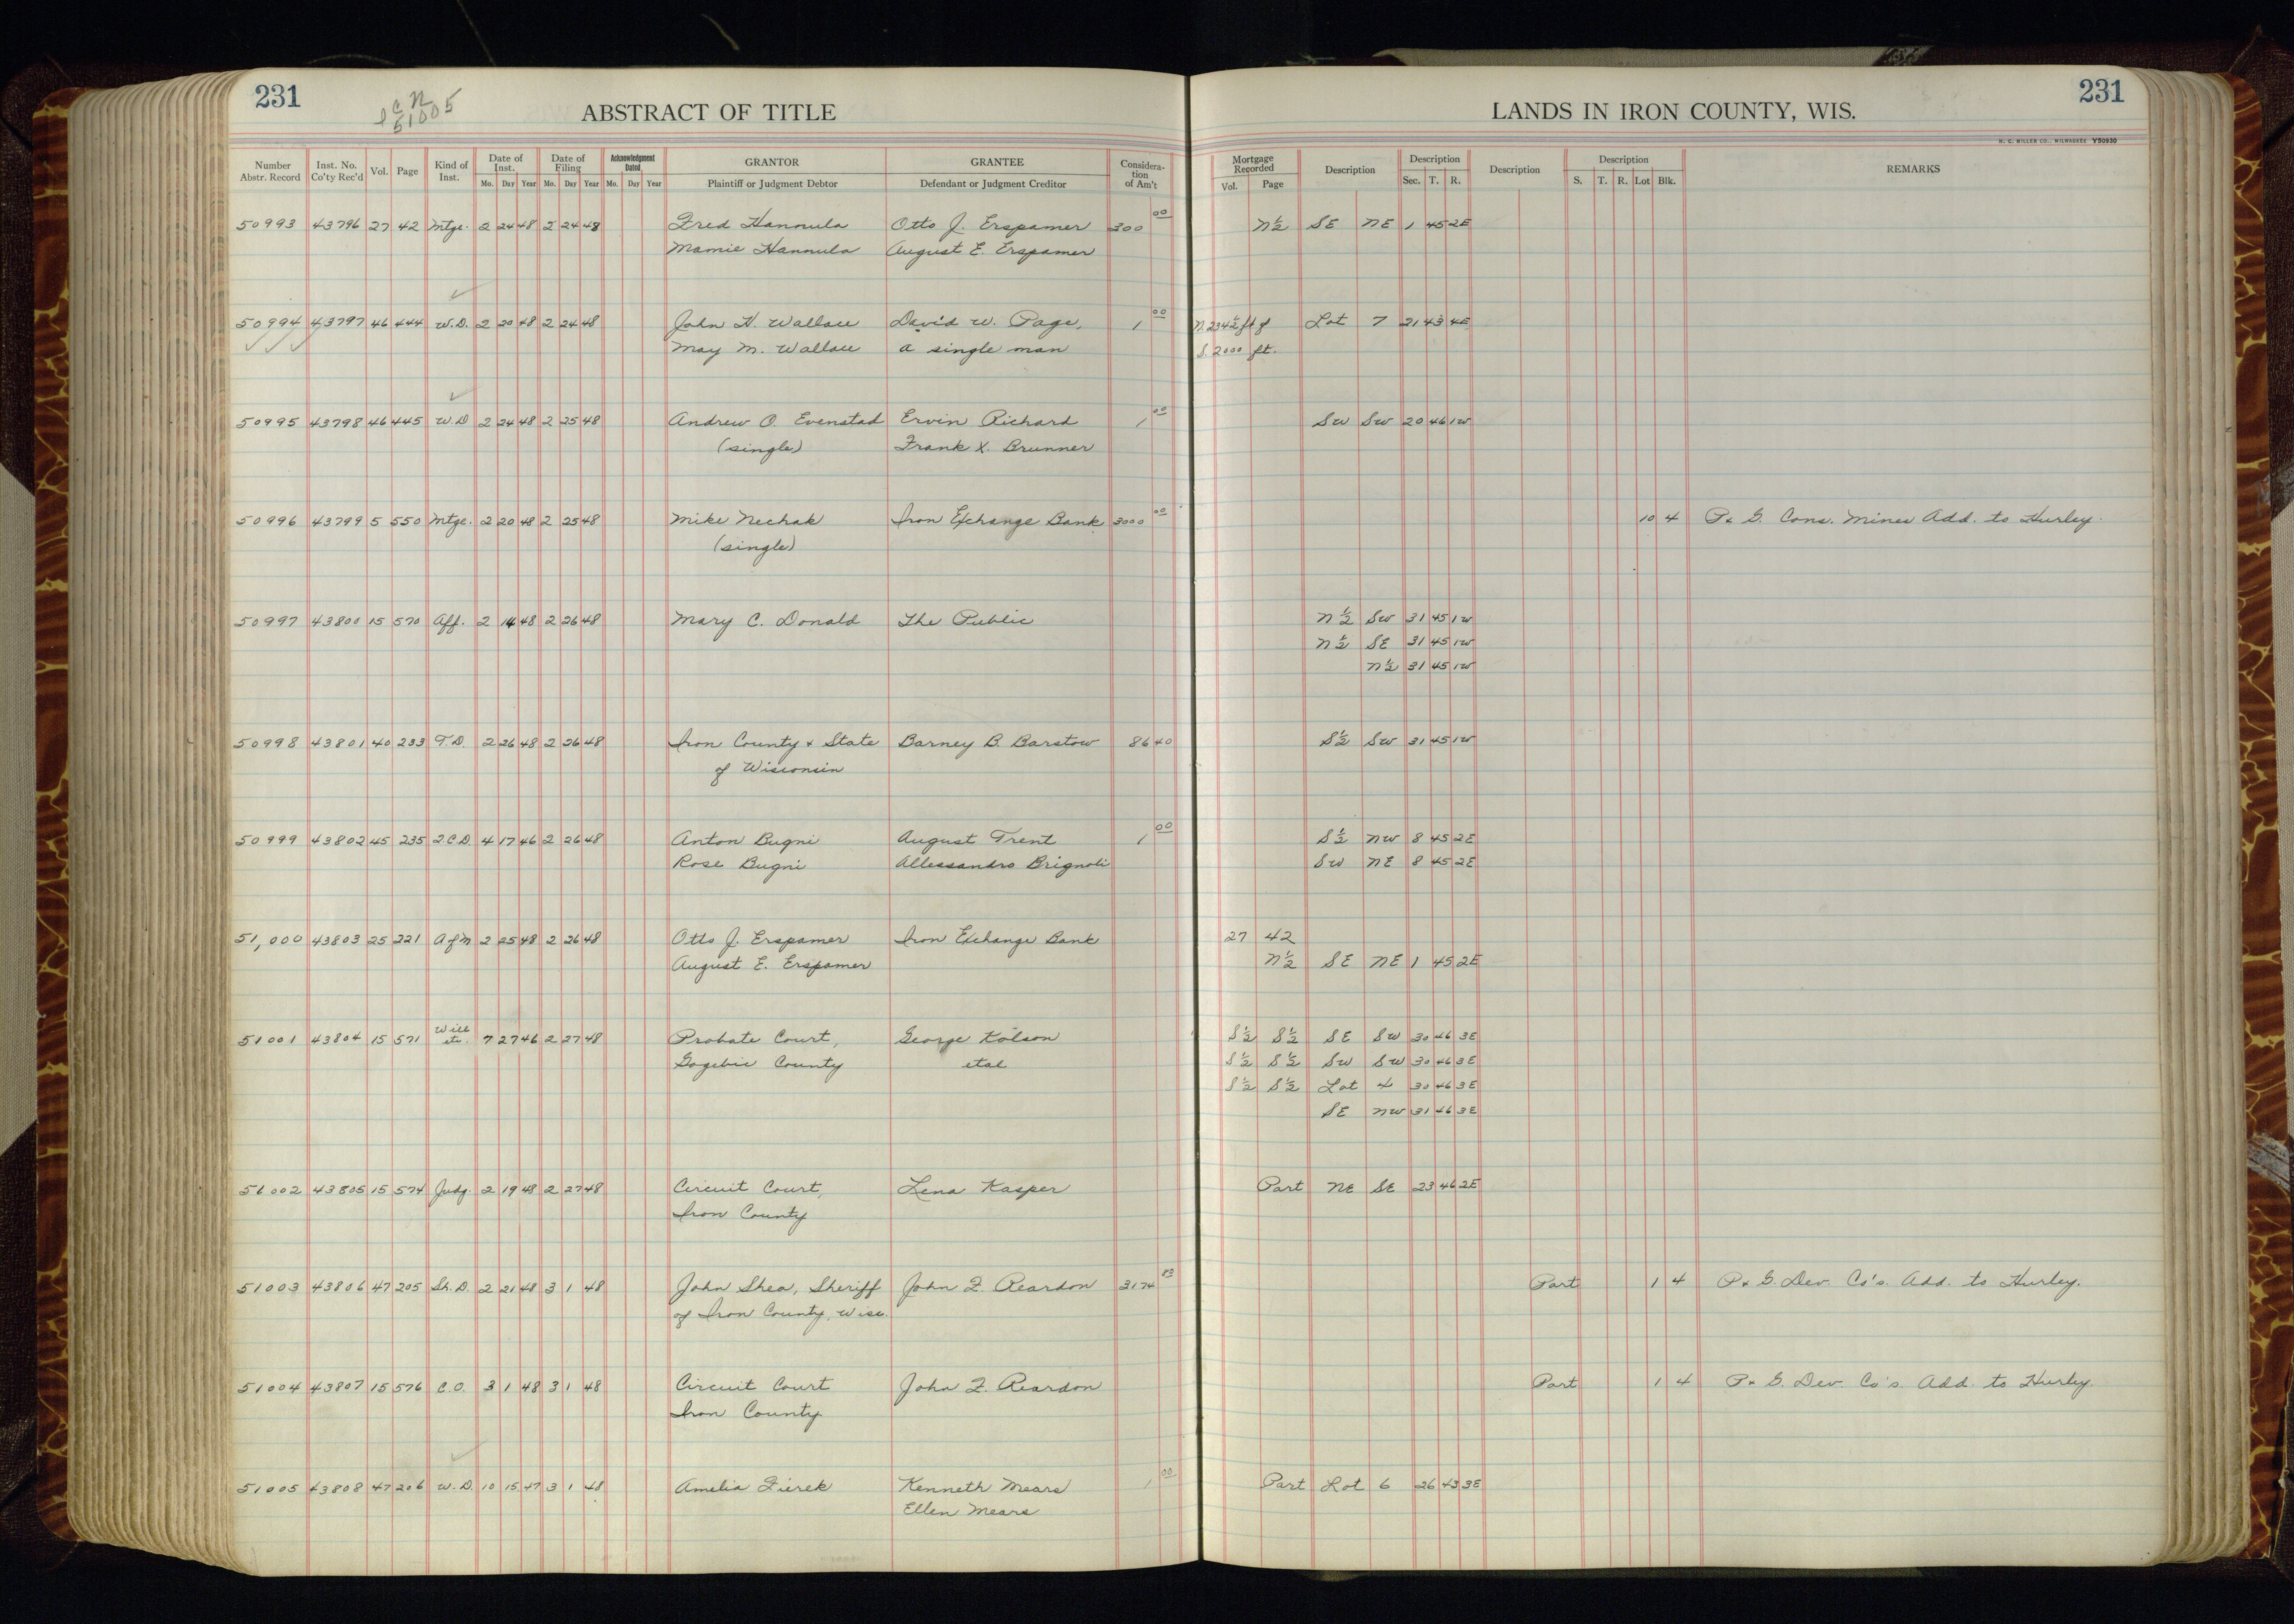 231
ABSTRACT OF TITLE
LANDS IN IRON COUNTY, WIS.
231
51005
H. C. MILLER CO., MILWAUKEE Y50930
Number Abstr. Record Inst. No. Co'ty Rec'd Vol. Page Kind of Inst. Date of Inst. Mo. Day Year Date of Filing Mo. Day Year Acknowledgment Dated Mo. Day Year GRANTOR Plaintiff or Judgment Debtor GRANTEE Defendant or Judgment Creditor Consideration of Am't Mortgage Recorded Vol. Page Description Description Sec. T. R. Description Description S. T. R. Lot Blk. REMARKS
50993 43796 27 42 Mtge. 2 24 48 2 24 48 Fred Hannula Otto J. Erspamer 300 00 N½ SE NE 1 45 2E
Mamie Hannula August E. Erspamer
50994 43797 46 444 W.D. 2 20 48 2 24 48 John H. Wallace David W. Page, 1 00 N. 234½ ft of Lot 7 21 43 4E
May M. Wallace a single man S. 2000 ft.
50995 43798 46 445 W.D 2 24 48 2 25 48 Andrew O. Evenstad Ervin Richard 1 00 SW SW 20 46 1W
(single) Frank X. Brunner
50996 43799 5 550 Mtge. 2 20 48 2 25 48 Mike Nechak Iron Exchange Bank 3000 00 10 4 P & G. Cons. Mines Add. to Hurley.
(single)
50997 43800 15 570 Aff. 2 14 48 2 26 48 Mary C. Donald The Public N½ SW 31 45 1W
N½ SE 31 45 1W
N½ 31 45 1W
50998 43801 40 233 T.D. 2 26 48 2 26 48 Iron County & State Barney B. Barstow 86 40 S½ SW 31 45 1W
of Wisconsin
50999 43802 45 235 Q.C.D. 4 17 46 2 26 48 Anton Bugni August Trent 1 00 S½ NW 8 45 2E
Rose Bugni Allessandro Brignoli SW NE 8 45 2E
51,000 43803 25 221 A of M 2 25 48 2 26 48 Otto J. Erspamer Iron Exchange Bank 27 42
August E. Erspamer N½ SE NE 1 45 2E
51001 43804 15 571 Will etc. 7 27 46 2 27 48 Probate Court, George Kolson S½ S½ SE SW 30 46 3E
Gogebic County etal S½ S½ SW SW 30 46 3E
S½ S½ Lot 4 30 46 3E
SE NW 31 46 3E
51002 43805 15 574 Judg. 2 19 48 2 27 48 Circuit Court, Lena Kasper Part NE SE 23 46 2E
Iron County
51003 43806 47 205 Sh. D. 2 21 48 3 1 48 John Shea, Sheriff John F. Reardon 3174 83 Part 1 4 P & G. Dev. Co's. Add. to Hurley.
of Iron County, Wisc.
51004 43807 15 576 C.O. 3 1 48 3 1 48 Circuit Court John F. Reardon Part 1 4 P & G. Dev. Co's. Add. to Hurley.
Iron County
51005 43808 47 206 W.D. 10 15 47 3 1 48 Amelia Fierek Kenneth Mears 1 00 Part Lot 6 26 43 3E
Ellen Mears